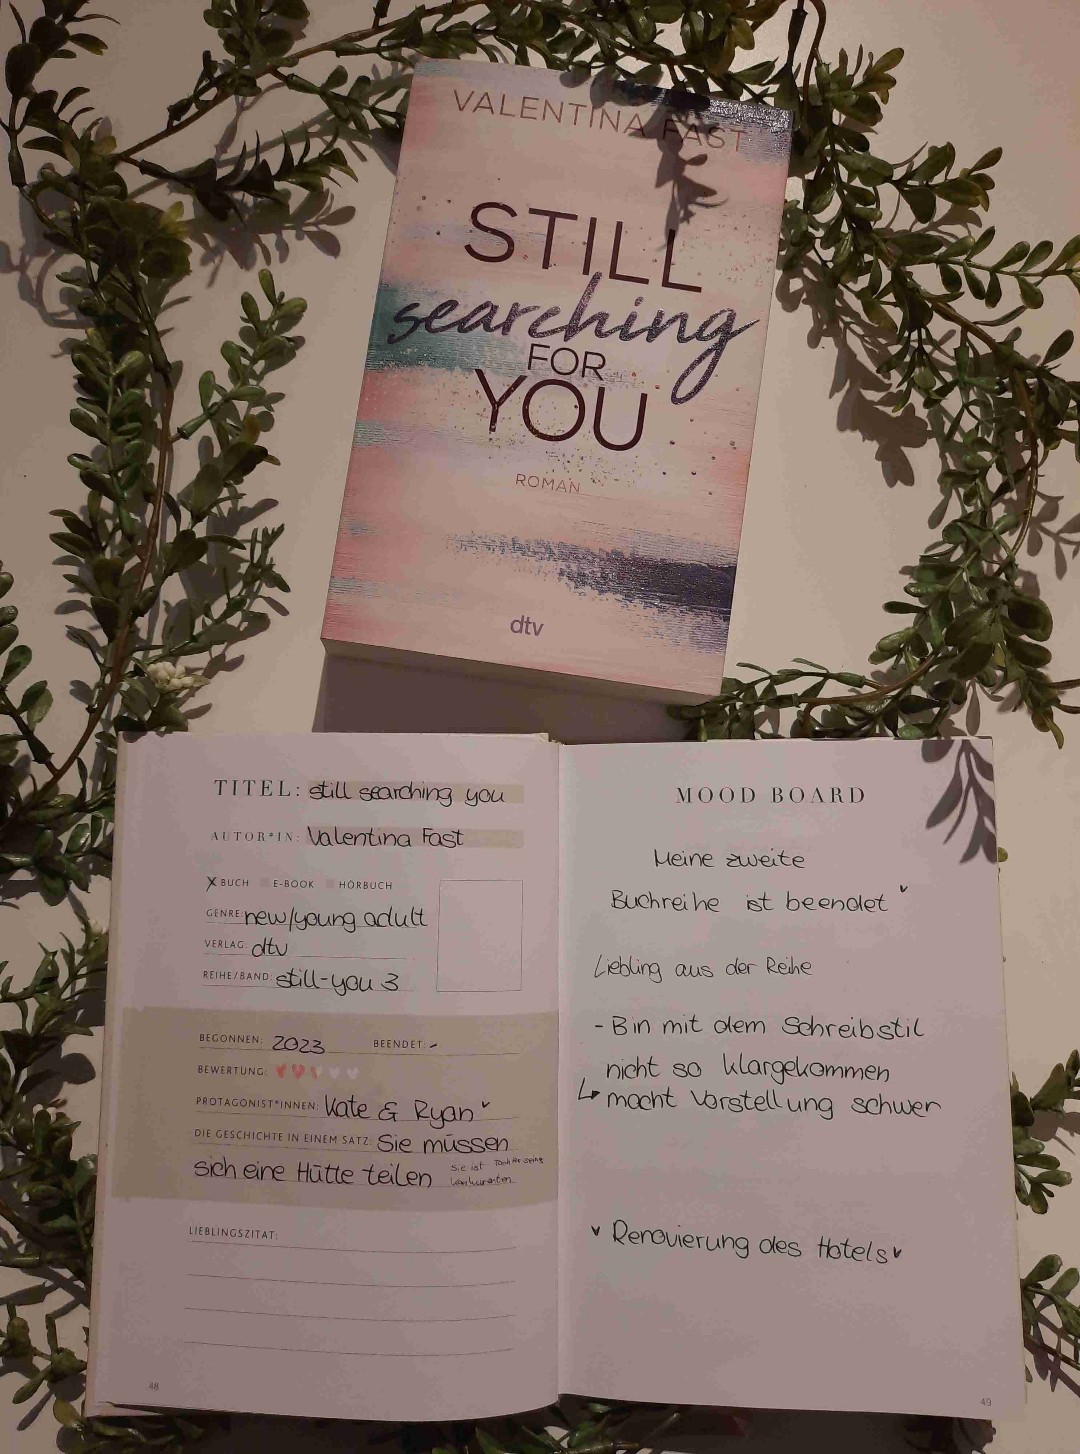 VALENTINA FAST
STILL
searching
FOR
YOU
ROMAN
dtv
TITEL: still searching you
AUTOR*IN: Valentina Fast
X BUCH E-BOOK HÖRBUCH
GENRE: new/young adult
VERLAG: dtv
REIHE/BAND: still-you 3
BEGONNEN: 2023 BEENDET: -
BEWERTUNG:
PROTAGONIST*INNEN: Kate & Ryan
DIE GESCHICHTE IN EINEM SATZ: Sie müssen
sich eine Hütte teilen
sie ist Tochter seines
Konkurenten
LIEBLINGSZITAT:
48
MOOD BOARD
Meine zweite
Buchreihe ist beendet
Liebling aus der Reihe
- Bin mit dem Schreibstil
nicht so klargekommen
↳ macht Vorstellung schwer
Renovierung des Hotels
49